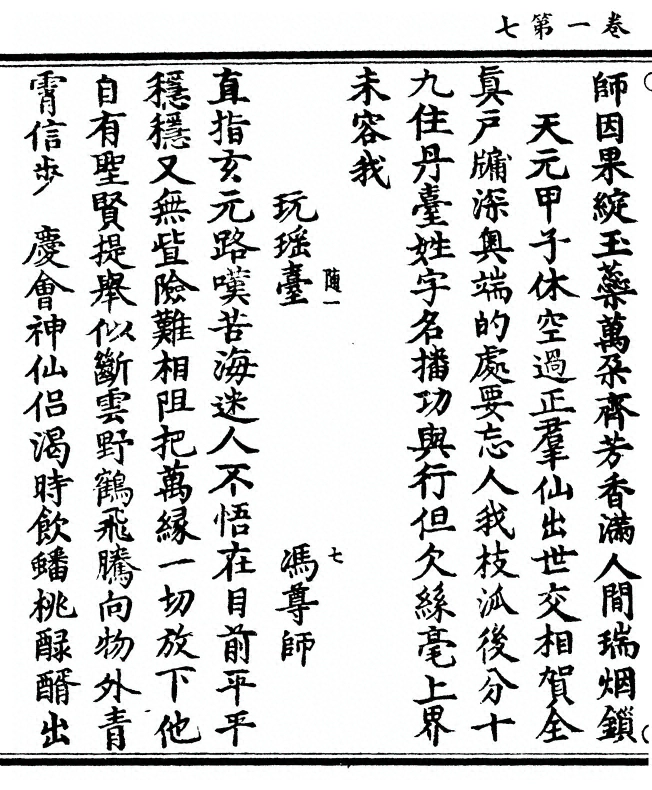 卷一第七
師因果綻玉蘂萬朶齊芳香滿人間瑞烟鎖
天元甲子休空過正羣仙出世交相賀全
眞戶牖深奧端的處要忘人我枝泒後分十
九住丹臺姓字名播功與行但欠絲毫上界
未容我
玩瑶臺 随一 馮尊師 七
直指玄元路嘆苦海迷人不悟在目前平平
穩穩又無眢險難相阻把萬緣一切放下他
自有聖賢提舉似斷雲野鶴飛騰向物外青
霄信步 慶會神仙侣渴時飲蟠桃醁醑出